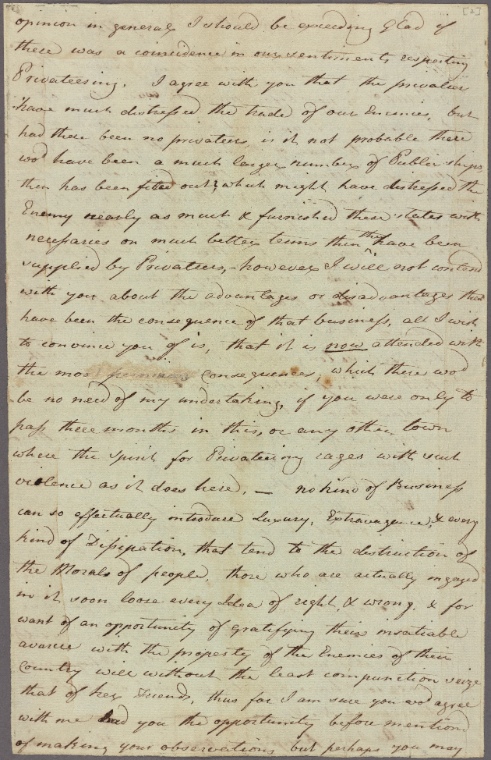 [2]
opinion in general I should be exceeding Glad if
there was a coincidence in our sentiments respecting
Privateering. I agree with you that the privateers
have much distressed the trade of our Enemies, but
had there been no privateers is it not probable there
wod have been a much larger number of Public ships
then has been fited out, which might have distressed the
Enemy nearly as much & furnished these states with
necessaries on much better terms then they have been
supplied by Privateers, however I will not contend
with you about the advantages or disadvantages that
have been the consequence of that business, all I wish
to convince you of is, that it is now attended with
the most pernicious consequences, which there wod
be no need of my undertaking, if you were only to
pass three months in this, or any other town
where the spirit for Privateering rages with such
violence as it does here. — no kind of Business
can so effectually introduce Luxury, Extravagence, & every
kind of Dissipation, that tend to the distruction of
the Morals of people. those who are actually engaged
in it soon loose every Idea of right & wrong, & for
want of an opportunity of gratifying their insatiable
avarice with the property of the Enemies of their
Country will without the least compunction seize
that of her Friends, thus far I am sure you wod agree
with me had you the opportunity before mention'd
of making your observations, but perhaps you may